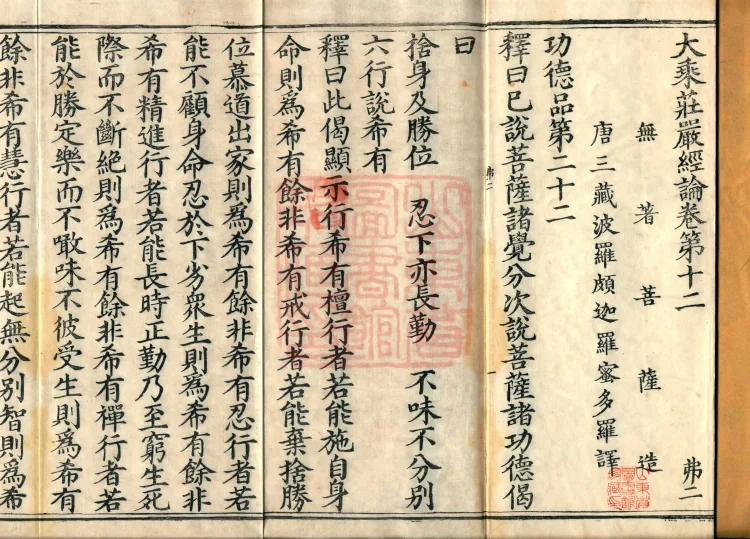 大乘莊嚴經論卷第十二 弗二
無著菩薩造
唐三藏波羅頗迦羅蜜多羅譯
功德品第二十二
釋曰已說菩薩諸覺分次說菩薩諸功德偈
弗二
曰
捨身及勝位 忍下亦長勤 不味不分別
六行說希有
釋曰此偈顯示行希有檀行者若能施自身
命則為希有餘非希有戒行者若能棄捨勝
位慕道出家則為希有餘非希有忍行者若
能不顧身命忍於下劣眾生則為希有餘非
希有精進行者若能長時正勤乃至窮生死
際而不斷絕則為希有餘非希有禪行者若
能於勝定樂而不噉味不彼受生則為希有
餘非希有慧行者若能起無分別智則為希